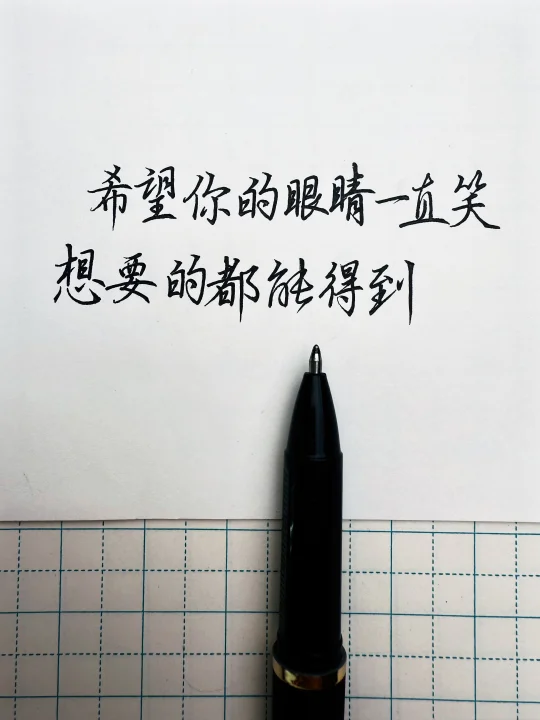 希望你的眼睛一直笑
想要的都能得到